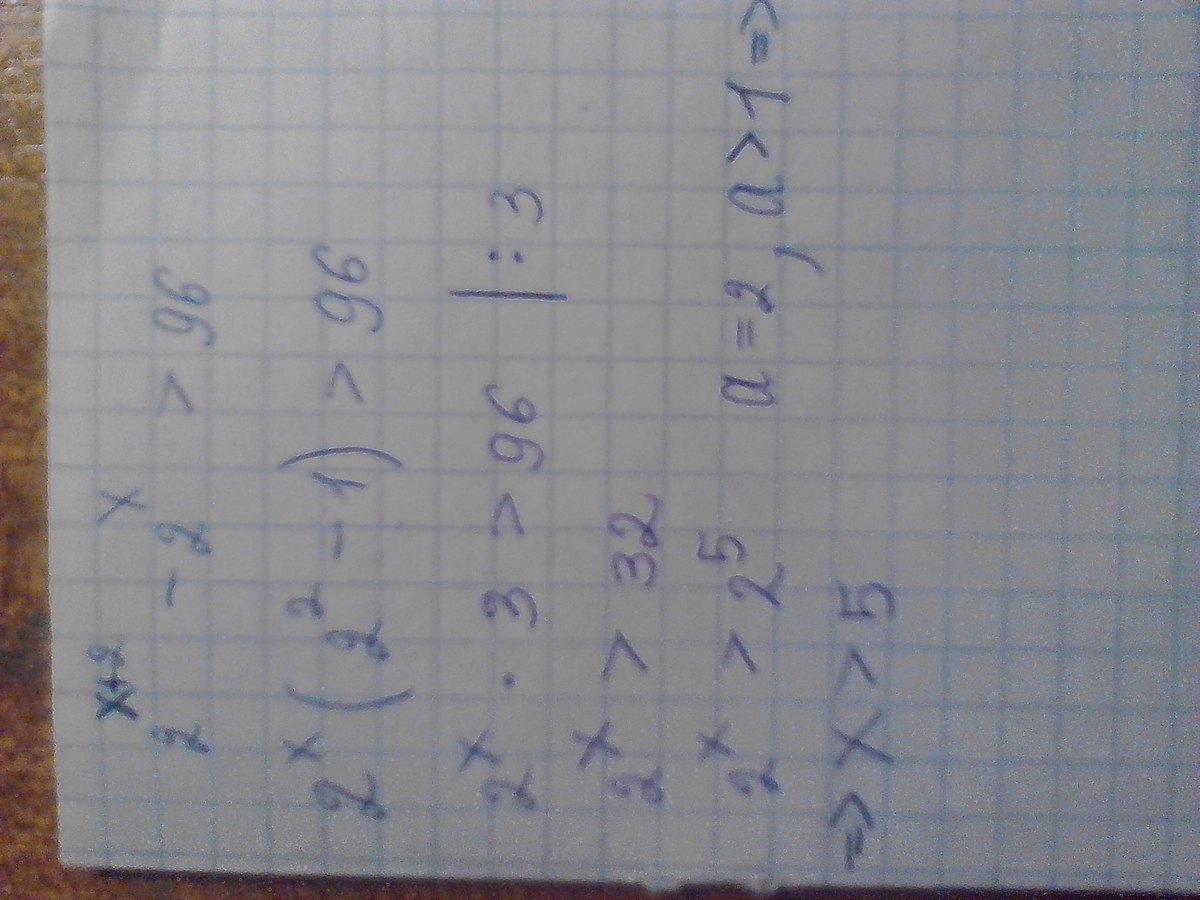 2^{x+2} - 2^x > 96
2^x (2^2 - 1) > 96
2^x · 3 > 96 | : 3
2^x > 32
2^x > 2^5 a = 2, a > 1 =>
=> x > 5